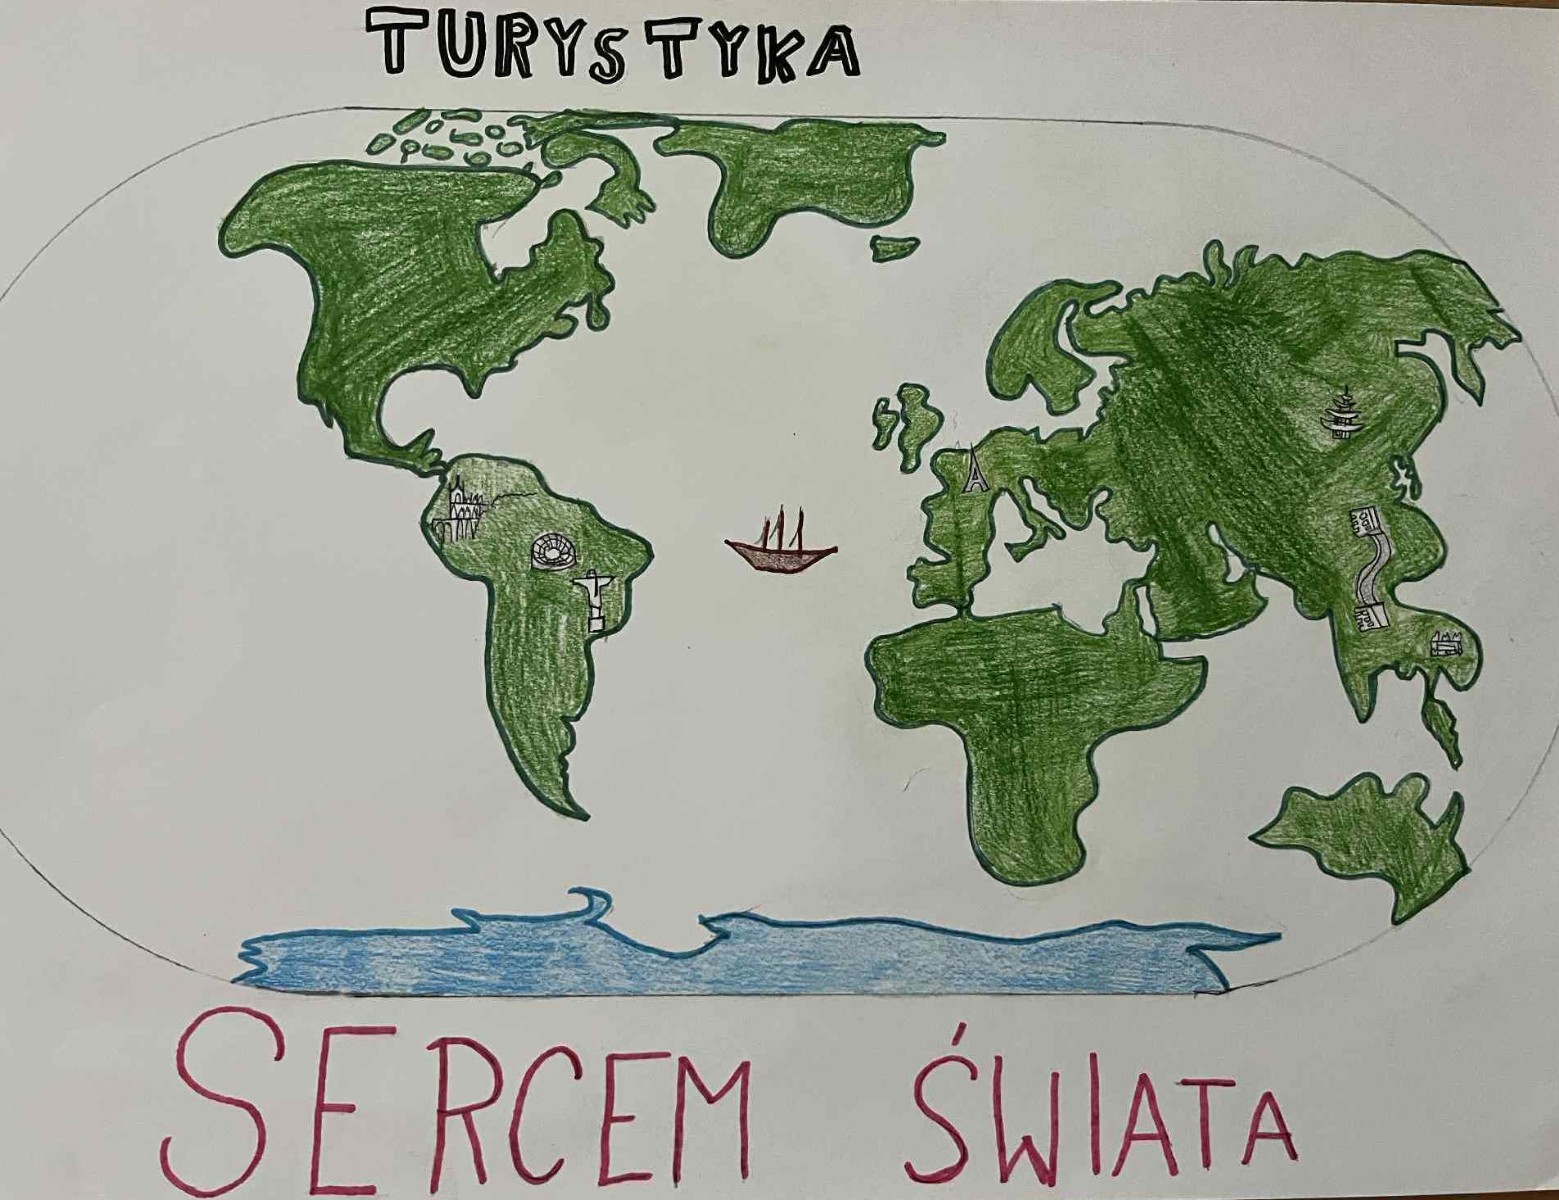 TURYSTYKA
SERCEM ŚWIATA